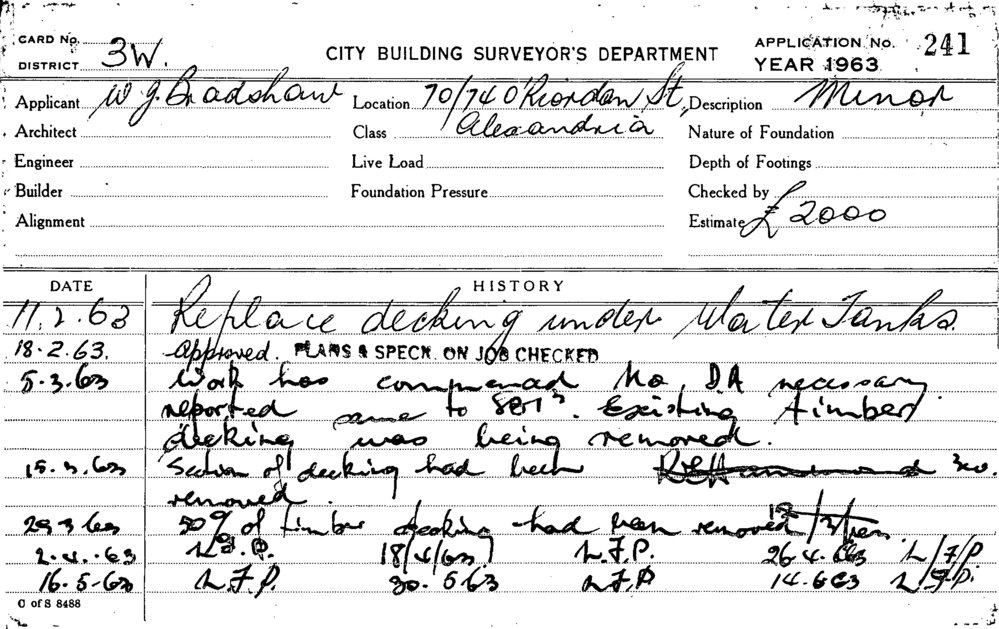 CARD No. CITY BUILDING SURVEYOR'S DEPARTMENT APPLICATION No. 241
DISTRICT 3W. YEAR 1963
Applicant W J. Bradshaw Location 70/74 O Riordan St, Description Minor
Architect Class Alexandria Nature of Foundation
Engineer Live Load Depth of Footings
Builder Foundation Pressure Checked by
Alignment Estimate £2000
DATE HISTORY
11.2.63 Replace decking under Water Tanks.
18.2.63. Approved. PLANS & SPECN. ON JOB CHECKED
5.3.63 Work has commenced No DA necessary
reported same to Existing timber
decking was being removed.
15.3.63 Section of decking had been 3w.
removed.
29.3.63 50% of timber decking had been removed
2.4.63 L.F.P. 18/4/63 L.F.P. 26.4.63 L/F/P
16.5.63 L.F.P. 30.5.63 L.F.P 14.6.63 L.F.P.
C of S 8488